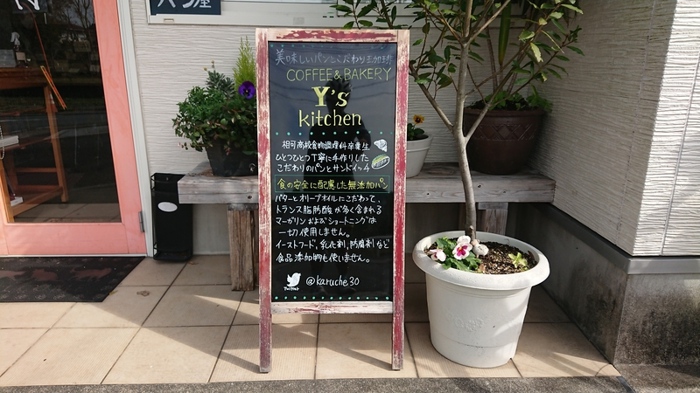 パン屋
美味しいパンとこだわり珈琲
COFFEE & BAKERY
Y's
kitchen
相可高校食物調理科卒業生
ひとつひとつ丁寧に手作りした
こだわりのパンとサンドイッチ
食の安全に配慮した無添加パン
バターとオリーブオイルにこだわって、
トランス脂肪酸が多く含まれる
マーガリンおよびショートニングは
一切使用しません。
イーストフード、乳化剤、防腐剤など
食品添加物も使いません。
Twitter
@karuche30